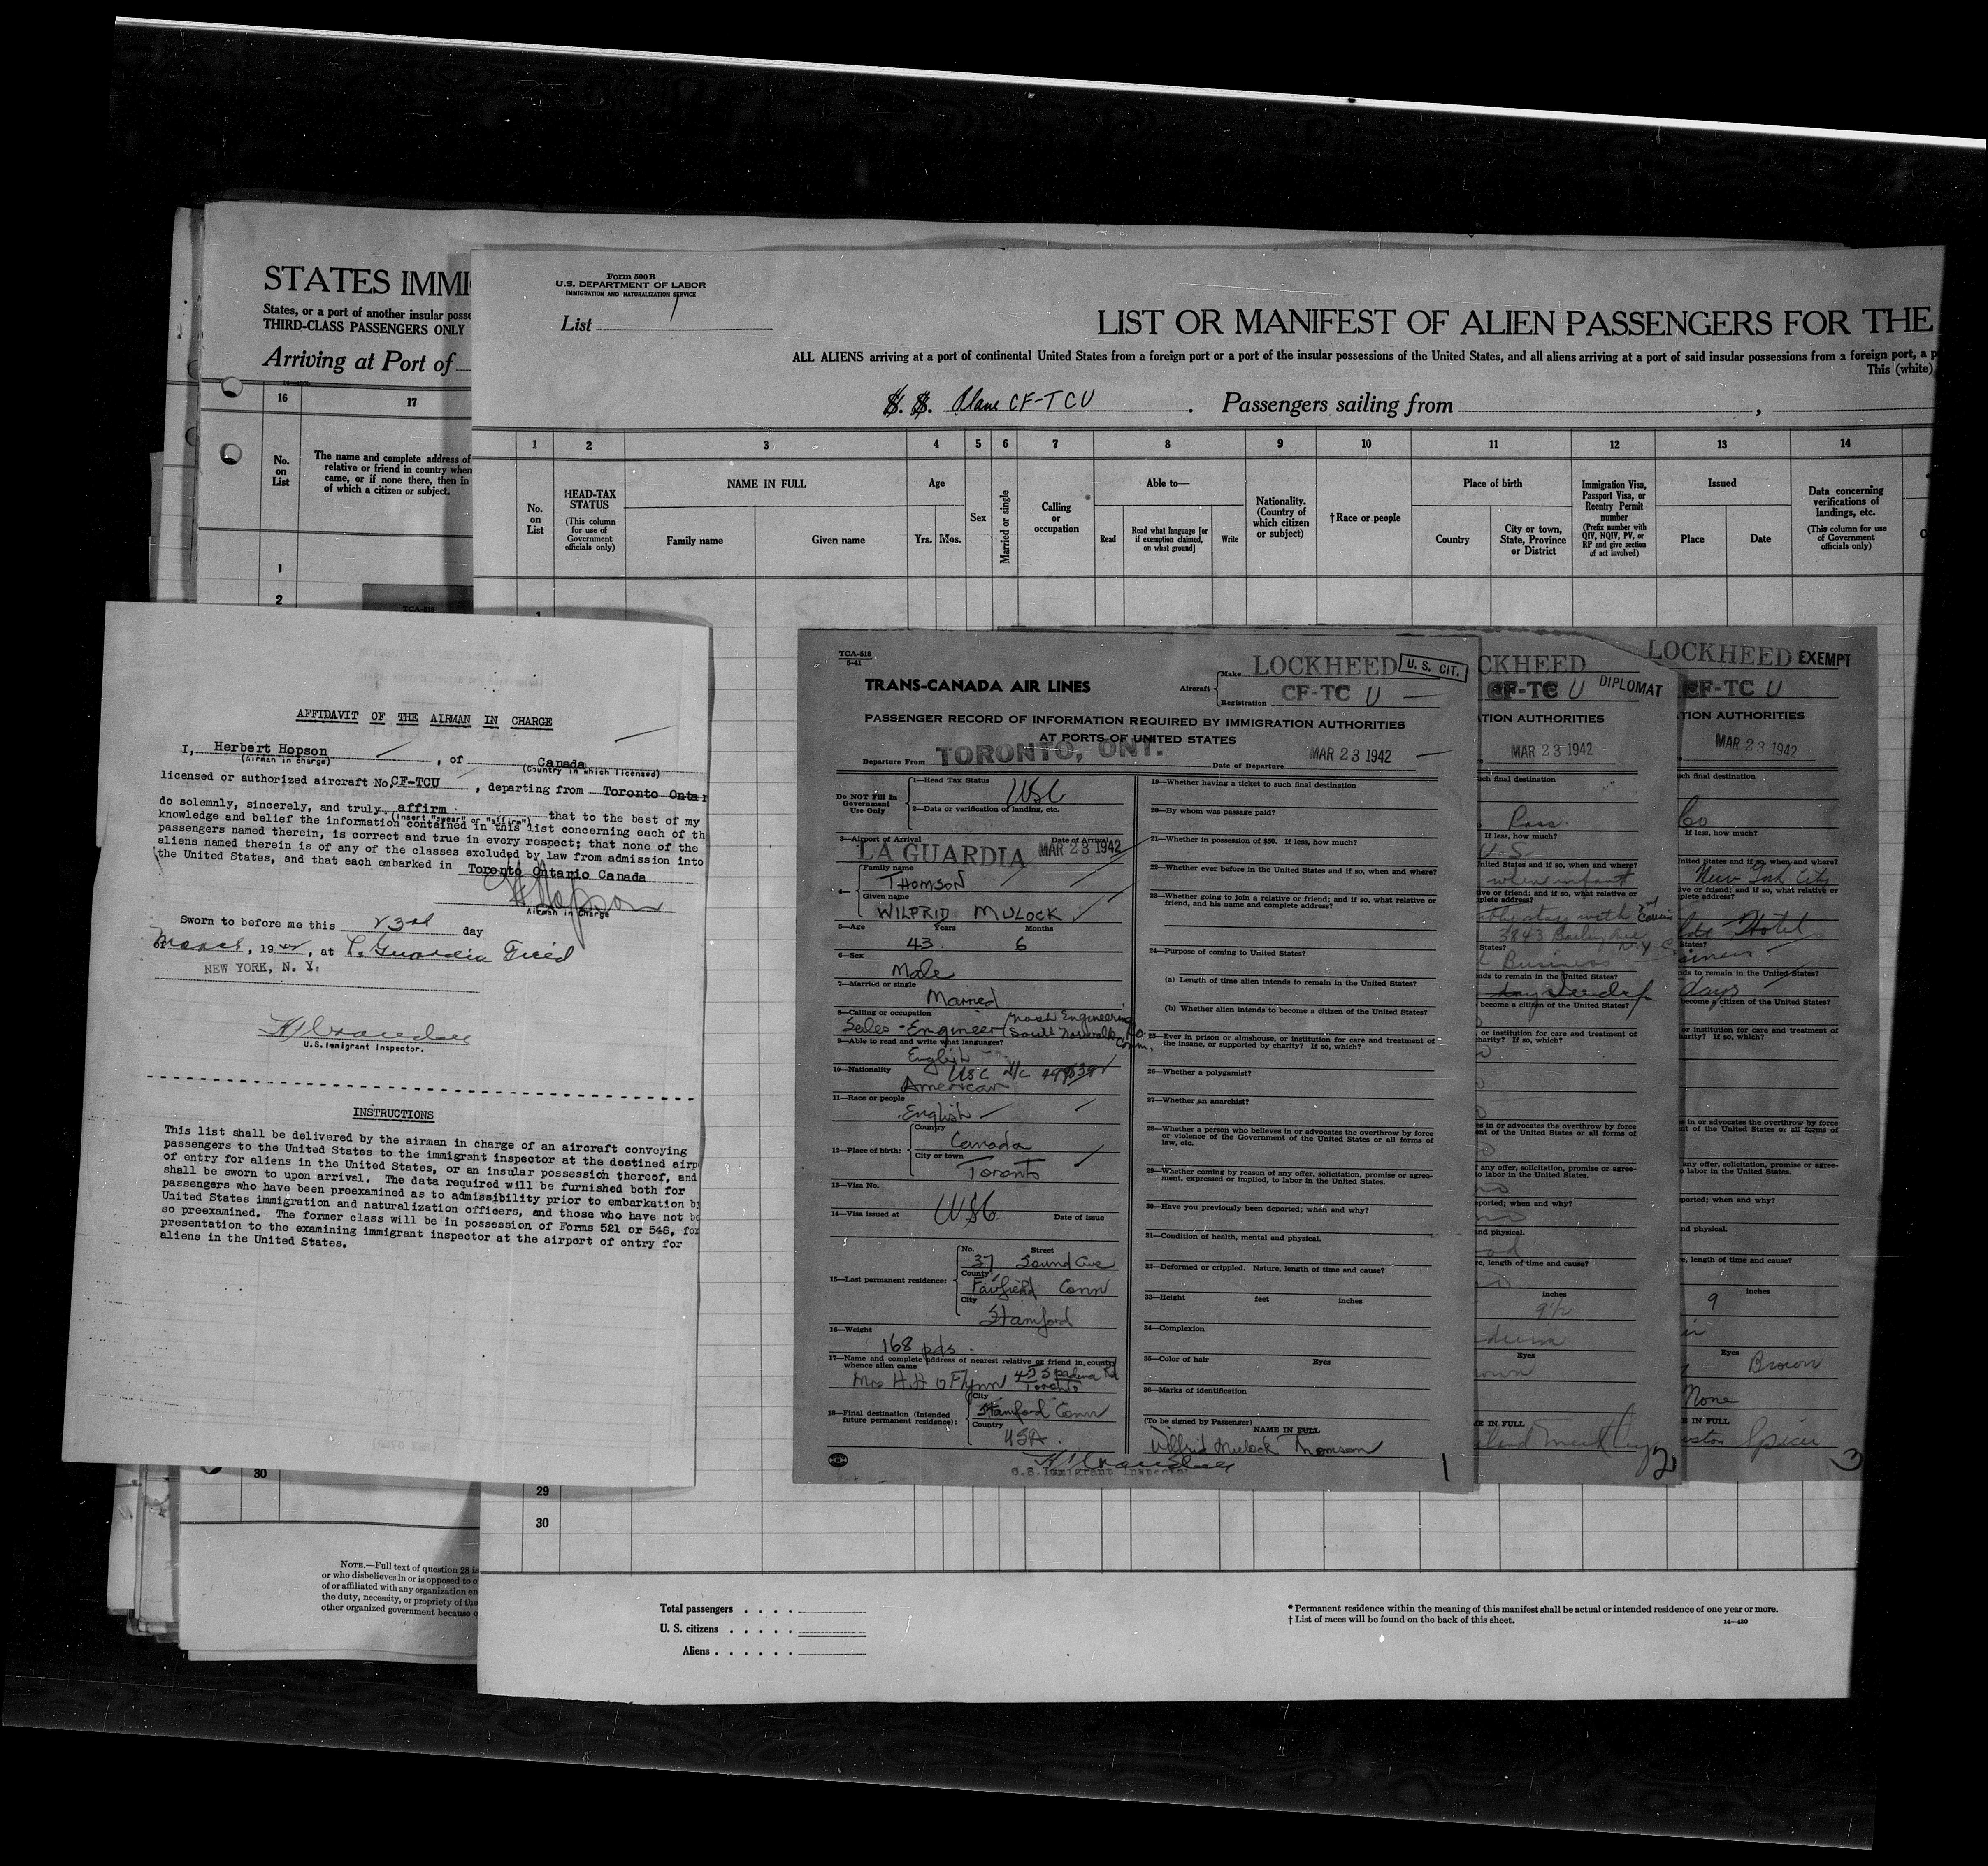 STATES IMMI
States, or a port of another insular posse
THIRD-CLASS PASSENGERS ONLY
Arriving at Port of
16
17
No. on List
The name and complete address of
relative or friend in country when
came, or if none there, then in
of which a citizen or subject.
1
2
TCA-518
30
NOTE.—Full text of question 28 is
or who disbelieves in or is opposed to o
of or affiliated with any organization en
the duty, necessity, or propriety of the
other organized government because o
Form 500B
U.S. DEPARTMENT OF LABOR
IMMIGRATION AND NATURALIZATION SERVICE
List 1
LIST OR MANIFEST OF ALIEN PASSENGERS FOR THE
ALL ALIENS arriving at a port of continental United States from a foreign port or a port of the insular possessions of the United States, and all aliens arriving at a port of said insular possessions from a foreign port, a p
This (white)
S. S. Plane CF-TCU . Passengers sailing from ,
1 2 3 4 5 6 7 8 9 10 11 12 13 14
No. on List
HEAD-TAX STATUS
(This column for use of Government officials only)
NAME IN FULL
Family name
Given name
Age
Yrs. Mos.
Sex
Married or single
Calling or occupation
Able to—
Read
Read what language [or if exemption claimed, on what ground]
Write
Nationality. (Country of which citizen or subject)
†Race or people
Place of birth
Country
City or town, State, Province or District
Immigration Visa, Passport Visa, or Reentry Permit number
(Prefix number with QIV, NQIV, PV, or RP and give section of act involved)
Issued
Place
Date
Data concerning verifications of landings, etc.
(This column for use of Government officials only)
1
29
30
Total passengers . . . .
U. S. citizens . . . . .
Aliens . . . . . .
* Permanent residence within the meaning of this manifest shall be actual or intended residence of one year or more.
† List of races will be found on the back of this sheet.
14—420
AFFIDAVIT OF THE AIRMAN IN CHARGE
I, Herbert Hopson , of Canada
(Airman in charge) (Country in which licensed)
licensed or authorized aircraft No. CF-TCU , departing from Toronto Ontar
do solemnly, sincerely, and truly affirm that to the best of my
(insert "swear" or "affirm")
knowledge and belief the information contained in this list concerning each of th
passengers named therein, is correct and true in every respect; that none of the
aliens named therein is of any of the classes excluded by law from admission into
the United States, and that each embarked in Toronto Ontario Canada
H Hopson
Airman in Charge
Sworn to before me this 23rd day
March, 1942, at La Guardia Field
NEW YORK, N. Y.
U.S. Immigrant Inspector.
INSTRUCTIONS
This list shall be delivered by the airman in charge of an aircraft conveying
passengers to the United States to the immigrant inspector at the destined airp
of entry for aliens in the United States, or an insular possession thereof, and
shall be sworn to upon arrival. The data required will be furnished both for
passengers who have been preexamined as to admissibility prior to embarkation by
United States immigration and naturalization officers, and those who have not be
so preexamined. The former class will be in possession of Forms 521 or 548, for
presentation to the examining immigrant inspector at the airport of entry for
aliens in the United States.
TCA-518
5-41
TRANS-CANADA AIR LINES
Aircraft
Make LOCKHEED U. S. CIT.
Registration CF-TC U
PASSENGER RECORD OF INFORMATION REQUIRED BY IMMIGRATION AUTHORITIES
AT PORTS OF UNITED STATES
Departure From TORONTO, ONT. Date of Departure MAR 23 1942
Do NOT Fill In Government Use Only
1—Head Tax Status
USC
2—Data or verification of landing, etc.
3—Airport of Arrival Date of Arrival
LA GUARDIA MAR 23 1942
4—
Family name
THOMSON
Given name
WILFRID MULOCK
5—Age Years Months
43 6
6—Sex
Male
7—Married or single
Married
8—Calling or occupation
Sales - Engineer (Nash Engineering Co. South Norwalk Conn.
9—Able to read and write what languages?
English
10—Nationality
USC
American
11—Race or people
English
12—Place of birth:
Country
Canada
City or town
Toronto
13—Visa No.
14—Visa issued at USC Date of issue
15—Last permanent residence:
No. Street
37 Sound Ave
County
Fairfield Conn
City
Stamford
16—Weight
168 pds.
17—Name and complete address of nearest relative or friend in country whence alien came
Mrs H. H O'Flynn 455 Spadina Rd Toronto
18—Final destination (Intended future permanent residence):
City
Stamford Conn
Country
USA.
19—Whether having a ticket to such final destination
20—By whom was passage paid?
21—Whether in possession of $50. If less, how much?
22—Whether ever before in the United States and if so, when and where?
23—Whether going to join a relative or friend; and if so, what relative or friend, and his name and complete address?
24—Purpose of coming to United States?
(a) Length of time alien intends to remain in the United States?
(b) Whether alien intends to become a citizen of the United States?
25—Ever in prison or almshouse, or institution for care and treatment of the insane, or supported by charity? If so, which?
26—Whether a polygamist?
27—Whether an anarchist?
28—Whether a person who believes in or advocates the overthrow by force or violence of the Government of the United States or all forms of law, etc.
29—Whether coming by reason of any offer, solicitation, promise or agreement, expressed or implied, to labor in the United States.
30—Have you previously been deported; when and why?
31—Condition of health, mental and physical.
32—Deformed or crippled. Nature, length of time and cause?
33—Height feet inches
34—Complexion
35—Color of hair Eyes
36—Marks of identification
(To be signed by Passenger) NAME IN FULL
Wilfrid Mulock Thomson
U.S. Immigrant Inspector
1
CKHEED
CF-TC U DIPLOMAT
TION AUTHORITIES
MAR 23 1942
ch final destination
If less, how much?
U.S.
nited States and if so, when and where?
when infant
ive or friend; and if so, what relative or
plete address?
stay with cousin
3843 Bailey Ave
N.Y.C
States?
Business
nds to remain in the United States?
become a citizen of the United States?
or institution for care and treatment of
harity? If so, which?
es in or advocates the overthrow by force
ent of the United States or all forms of
f any offer, solicitation, promise or agree-
o labor in the United States.
no
eported; when and why?
nd physical.
re, length of time and cause?
inches
9½
Eyes
ME IN FULL
2
LOCKHEED EXEMPT
CF-TC U
TION AUTHORITIES
MAR 23 1942
ch final destination
Co
If less, how much?
nited States and if so, when and where?
New York City
ive or friend; and if so, what relative or
plete address?
Hotel
States?
nds to remain in the United States?
days
become a citizen of the United States?
or institution for care and treatment of
harity? If so, which?
s in or advocates the overthrow by force
nt of the United States or all forms of
any offer, solicitation, promise or agree-
o labor in the United States.
ported; when and why?
nd physical.
e, length of time and cause?
inches
9
Eyes
Brown
None
E IN FULL
Spicer
3